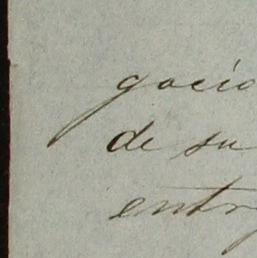 gocio
de su
entr